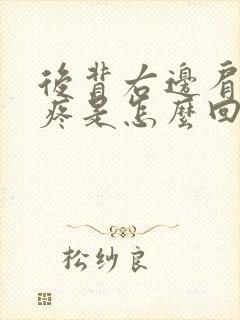 後背右邊肩
疼是怎麼回
松纱良